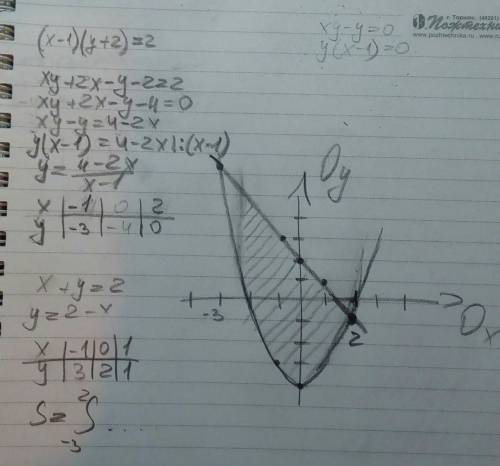 (x-1)(y+2)=2
xy+2x-y-2=2
xy+2x-y-4=0
xy-y=4-2x
y(x-1)=4-2x|:(x-1)
y=\frac{4-2x}{x-1}
x | -1 | 0 | 2
y | -3 | -4 | 0
x+y=2
y=2-x
x | -1 | 0 | 1
y | 3 | 2 | 1
S=\int_{-3}^{2} ....
xy-y=0
y(x-1)=0
Пожтехника
Oy
-3
2
Ox